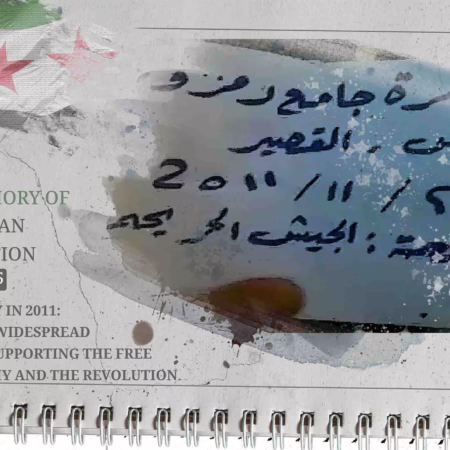 جامع رمزو
القصير
/ 11 / 2011
: الجيش الحر
ORY OF
AN
TION
IN 2011:
WIDESPREAD
UPPORTING THE FREE
AND THE REVOLUTION.